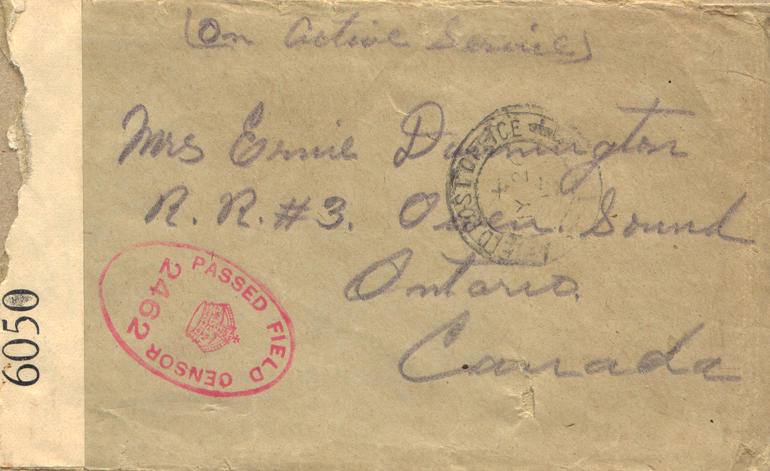 (On Active Service)
Mrs Ernie Dunnington
R.R.#3. Owen Sound
Ontario.
Canada
FIELD POST OFFICE
PASSED FIELD CENSOR
2462
6050